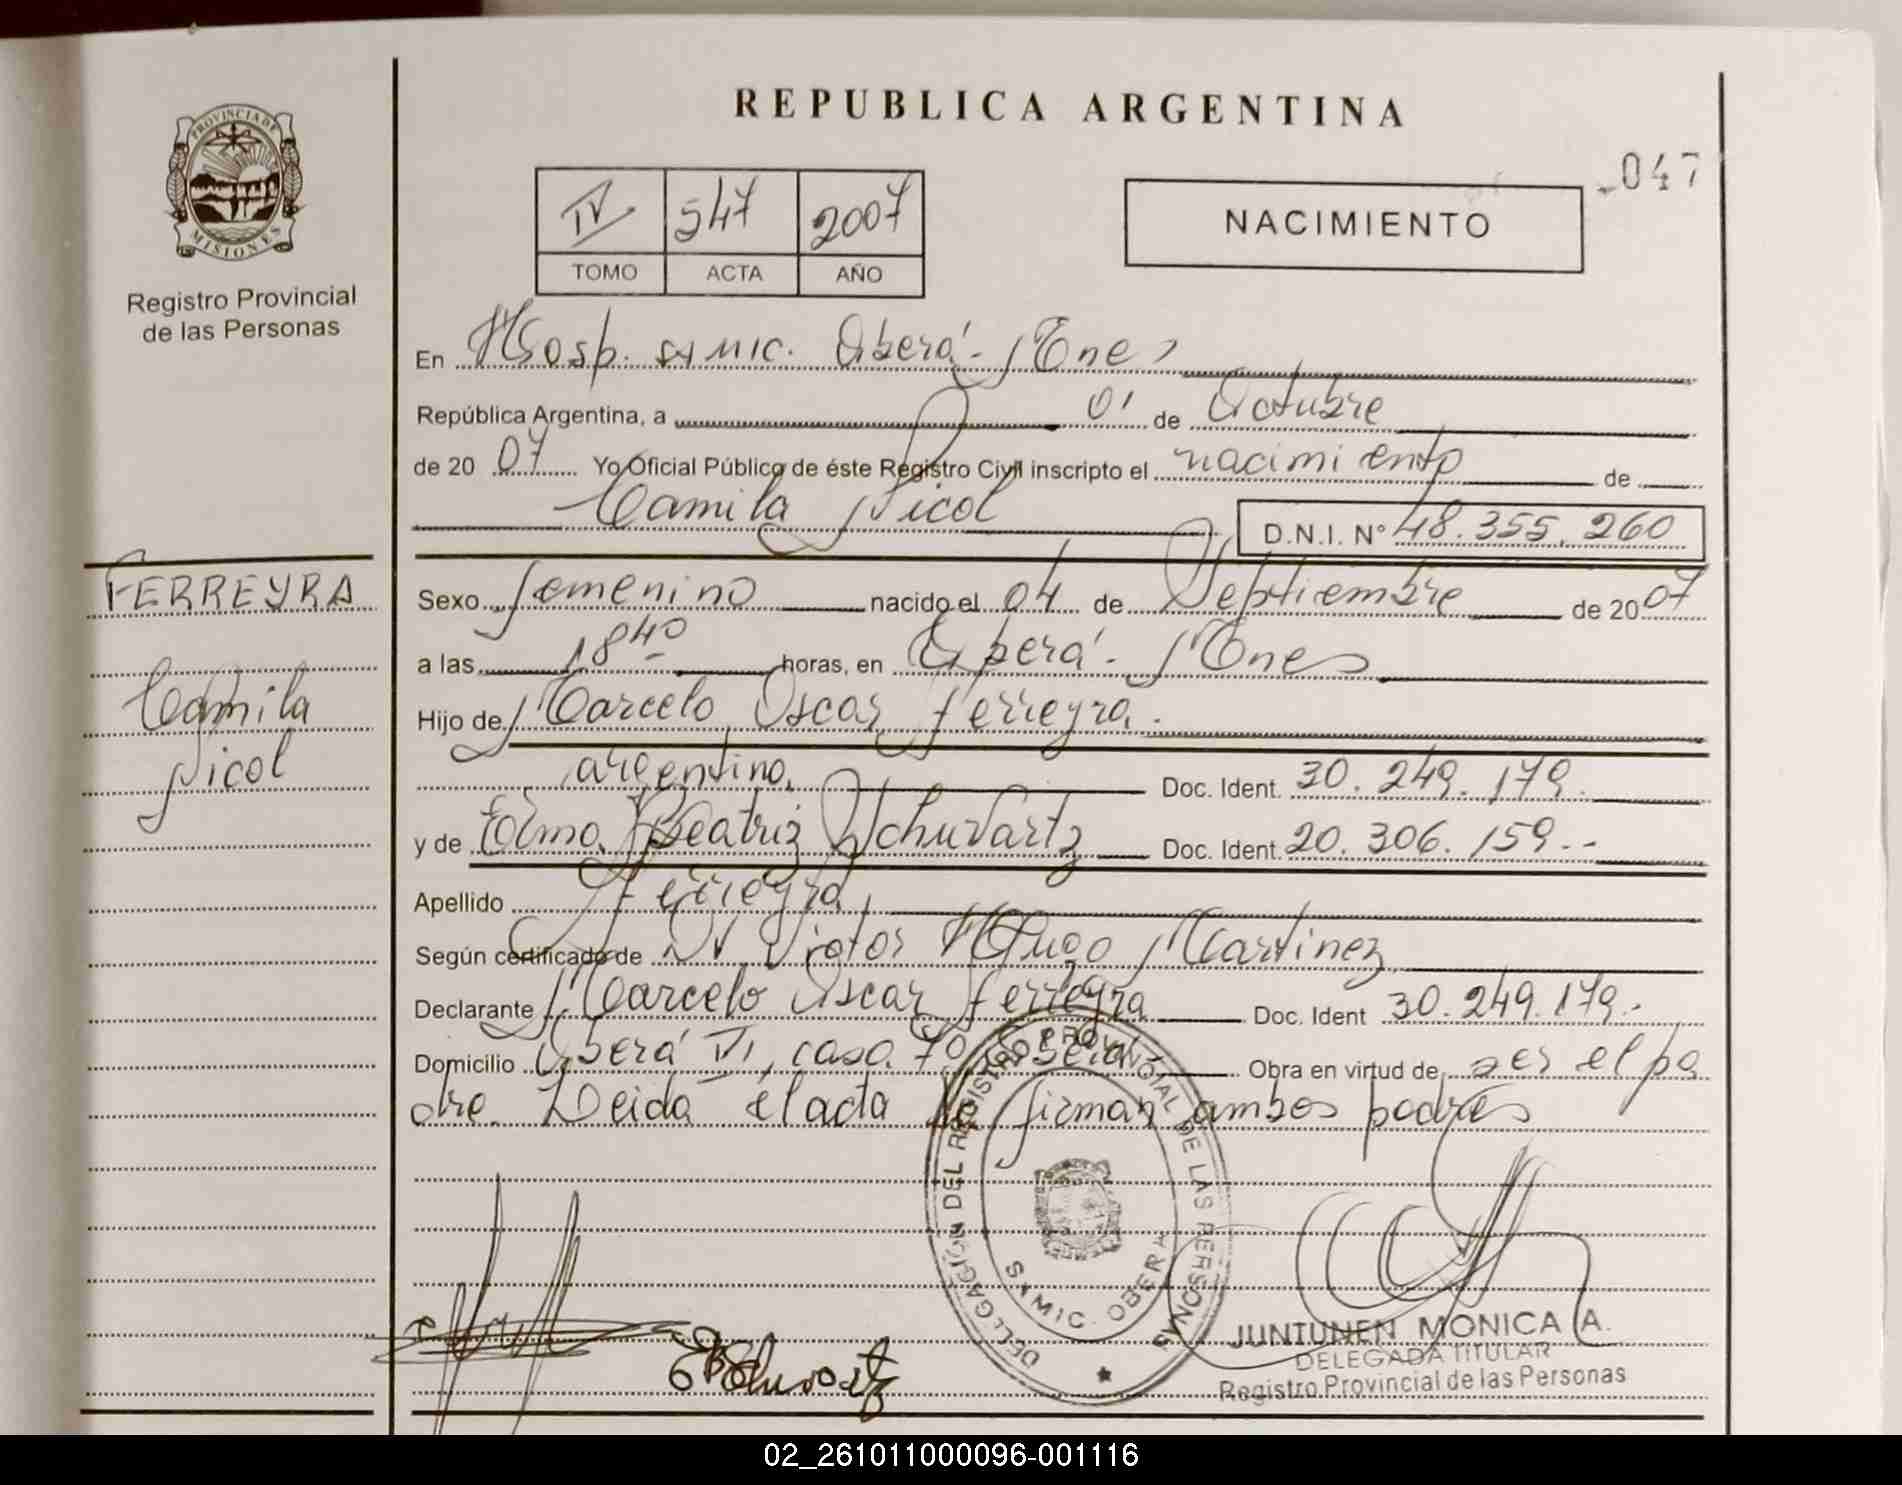 REPUBLICA ARGENTINA
047
PROVINCIA DE
MISIONES
Registro Provincial
de las Personas
IV 547 2007
TOMO ACTA AÑO
NACIMIENTO
En Hosp. SAMIC. Oberá - Mnes
República Argentina, a 01 de Octubre
de 20 07 Yo Oficial Público de éste Registro Civil inscripto el nacimiento de
Camila Nicol D.N.I. Nº 48.355.260
FERREYRA
Camila
Nicol
Sexo femenino nacido el 04 de Septiembre de 20 07
a las 18 40 horas, en Oberá - Mnes
Hijo de Marcelo Oscar Ferreyra.
argentino. Doc. Ident. 30.249.179.
y de Beatriz Schuvartz Doc. Ident. 20.306.159.--
Apellido Ferreyra
Según certificado de Dr. Victor Hugo Martinez
Declarante Marcelo Oscar Ferreyra Doc. Ident 30.249.179.-
Domicilio Oberá VI, casa 70 Oberá- Obra en virtud de ser el pa
dre. Leida el acta la firman ambos padres
DELEGACIÓN DEL REGISTRO PROVINCIAL DE LAS PERSONAS
SAMIC. OBERA
EBSchuvartz
JUNTUNEN MONICA A.
DELEGADA TITULAR
Registro Provincial de las Personas
02_261011000096-001116